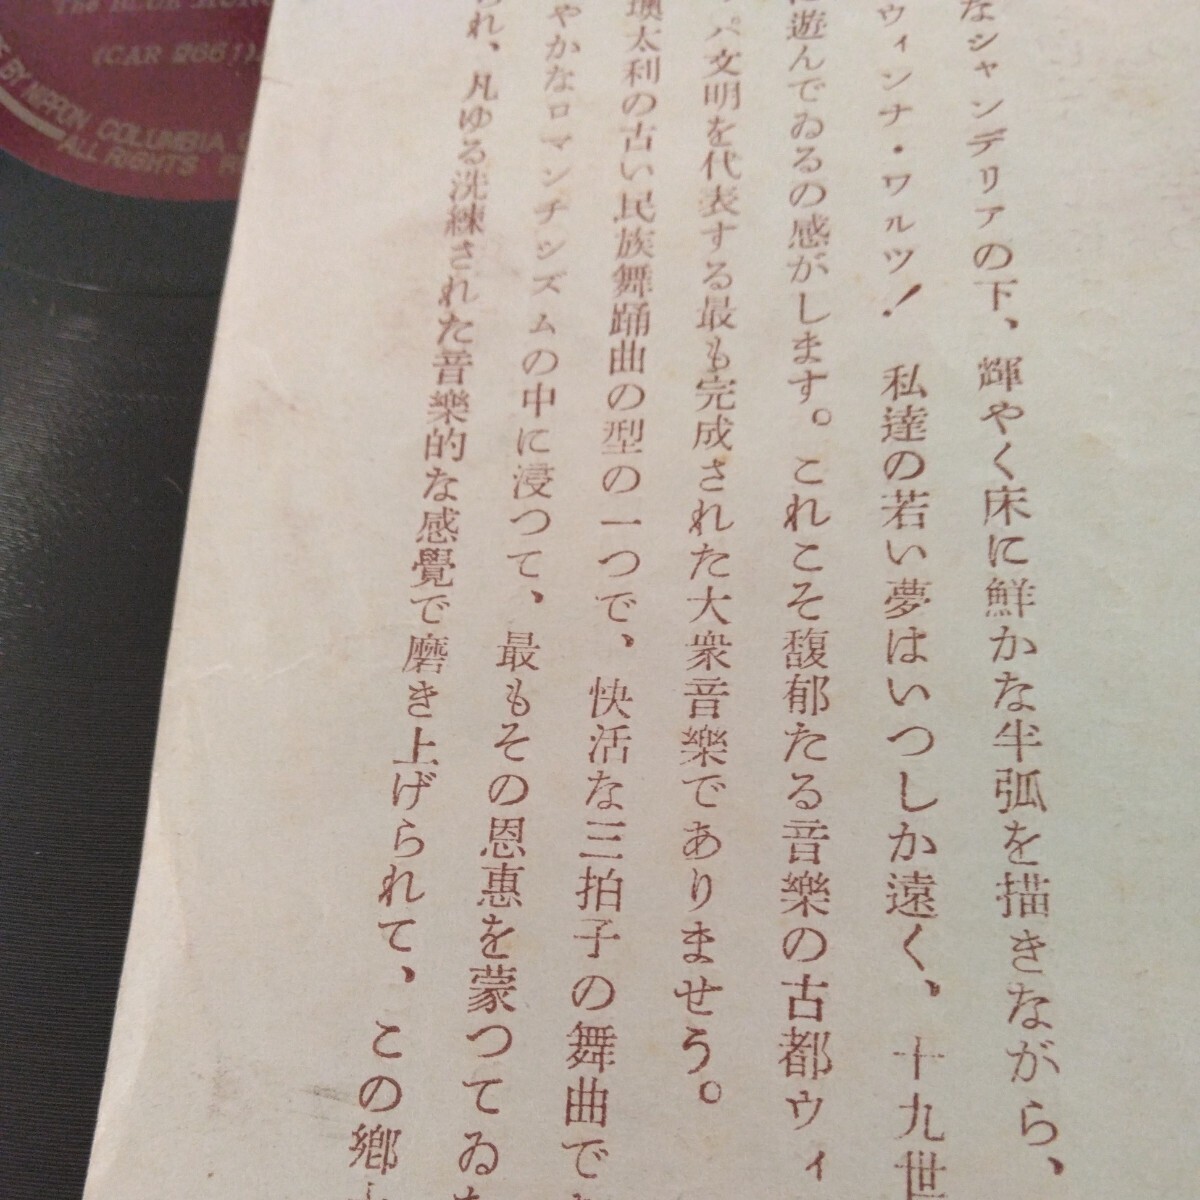 なシャンデリアの下、輝やく床に鮮かな半弧を描きながら、
ウィンナ・ワルツ！ 私達の若い夢はいつしか遠く、十九世
遊んでゐるの感がします。これこそ馥郁たる音樂の古都ウィ
パ文明を代表する最も完成された大衆音樂でありませう。
墺太利の古い民族舞踊曲の型の一つで、快活な三拍子の舞曲で
やかなロマンチシズムの中に浸つて、最もその恩惠を蒙つてゐ
れ、凡ゆる洗練された音樂的な感覺で磨き上げられて、この鄕
The BLUE
(CAR 266
BY NIPPON COLUMBIA
ALL RIGHTS